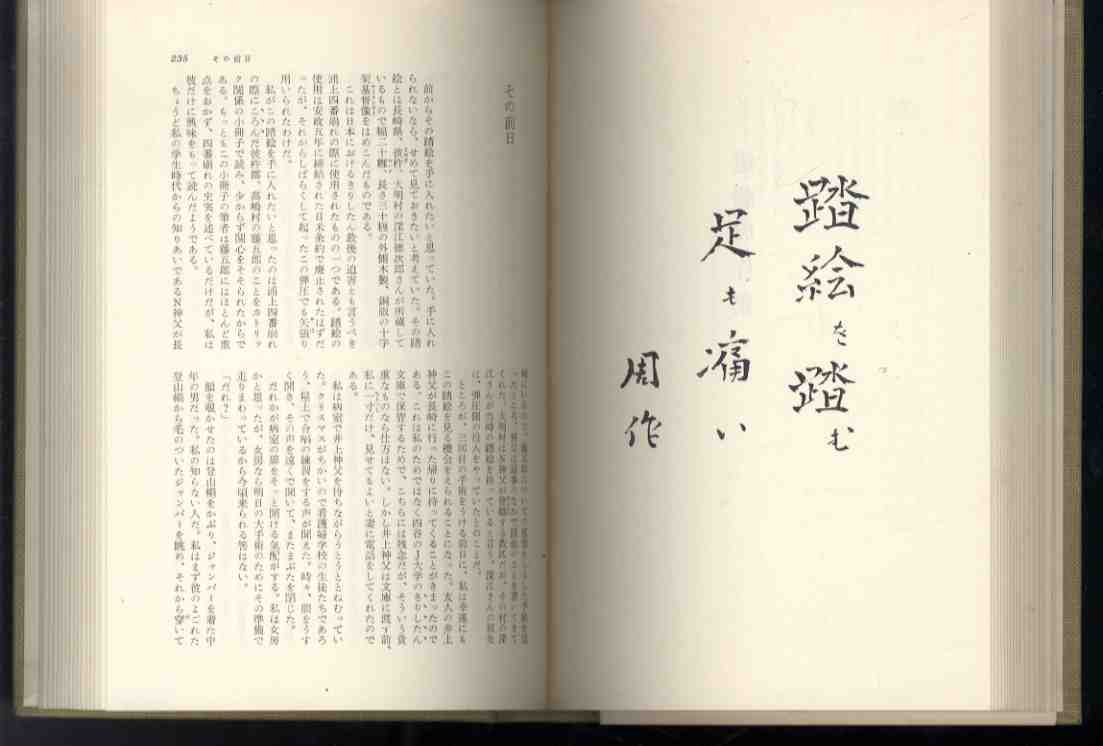 踏絵を踏む
足も痛い
周作
235 その前日
その前日
前からその踏絵を手に入れたいと思っていた。手に入れ
られないなら、せめて見ておきたいと考えていた。その踏
絵とは長崎県、彼杵、大明村の深江徳次郎さんが所蔵して
いるもので幅二十糎、長さ三十糎の外側木製、銅版の十字
架基督像をはめこんだものである。
これは日本におけるきりしたん最後の迫害とも言うべき
浦上四番崩れの際に使用されたものの一つである。踏絵の
使用は安政五年に締結された日米条約で廃止されたはずだ
ったが、それからしばらくして起ったこの弾圧でも矢張り
用いられたわけだ。
私がこの踏絵を手に入れたいと思ったのは浦上四番崩れ
の際にころんだ彼杵郡、高嶋村の藤五郎のことをカトリッ
ク関係の小冊子で読み、少からず関心をそそられたからで
ある。もっともこの小冊子の筆者は藤五郎にはほとんど重
点をおかず、四番崩れの史実を述べているだけだが、私は
彼だけに興味をもって読んだようである。
ちょうど私の学生時代からの知りあいであるN神父が長
くれた。大明村はN神父が管轄する教区だが、その村の深
江さんが当時の踏絵を持っていると言う。深江さんの祖先
は、弾圧側の役人をやっていたとのことだ。
ところが、三回目の手術をうける前日に、私は幸運にも
この踏絵を見る機会をえられることになった。友人の井上
神父が長崎に行った帰りに持ってくることがきまったので
ある。これは私のためではなく四谷のJ大学のきりしたん
文庫で保管するためで、こちらには残念だが、そういう貴
重なものなら仕方はない。しかし井上神父は文庫に渡す前、
私に一寸だけ、見せてもよいと妻に電話をしてくれたので
ある。
私は病室で井上神父を待ちながらうとうととねむってい
た。クリスマスがちかいので看護婦学校の生徒たちであろ
う、屋上で合唱の練習をする声が聞えた。時々、眼をうす
く開き、その声を遠くで聞いて、またまぶたを閉じた。
だれかが病室の扉をそっと開ける気配がする。私は女房
かと思ったが、女房なら明日の大手術のためにその準備で
走りまわっているから今頃来られる筈はない。
「だれ？」
顔を覗かせたのは登山帽をかぶり、ジャンパーを着た中
年の男だった。私の知らない人だ。私はまず彼のよごれた
登山帽から毛のついたジャンパーを眺め、それから穿いて